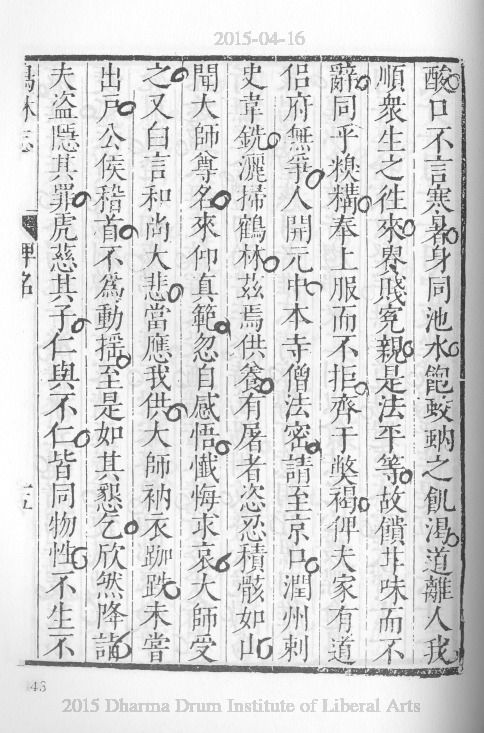 2015-04-16
酸口不言寒暑身同池水飽蚊蚋之飢渴道離人我
順衆生之往來界賤寃親是法平等故饋甘味而不
辭同乎糗糒奉上服而不拒齊于獘褐俾夫家有道
侶府無爭人開元中本寺僧法密請至京口潤州刺
史韋銑灑掃鶴林茲焉供養有屠者恣忍積骸如山
聞大師尊名來仰真範忽自感悟懺悔求哀大師受
之又白言和尚大悲當應我供大師衲衣跏趺未嘗
出戶公侯稽首不為動搖至是如其懇乞欣然降詣
夫盜隱其罪虎慈其子仁與不仁皆同物性不生不
林志
碑名
五
46
2015 Dharma Drum Institute of Liberal Arts